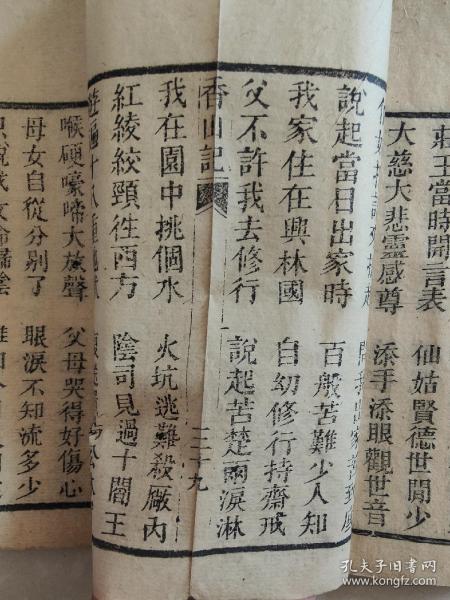 莊王當時開言表 仙姑賢德世間少
大慈大悲靈感尊 添手添眼觀世音
說起當日出家時 百般苦難少人知
我家住在興林國 自幼修行持齋戒
父不許我去修行 說起苦楚兩淚淋
香山記 三十九
我在園中挑個水 火坑逃難殺廠內
紅綾絞頸徃西方 陰司見過十閻王
遊遍十八重地獄
喉硬嚎啼大放聲 父母哭得好傷心
母女自從分剐了 眼淚不知流多少
孔夫子旧书网
www.kongfz.com